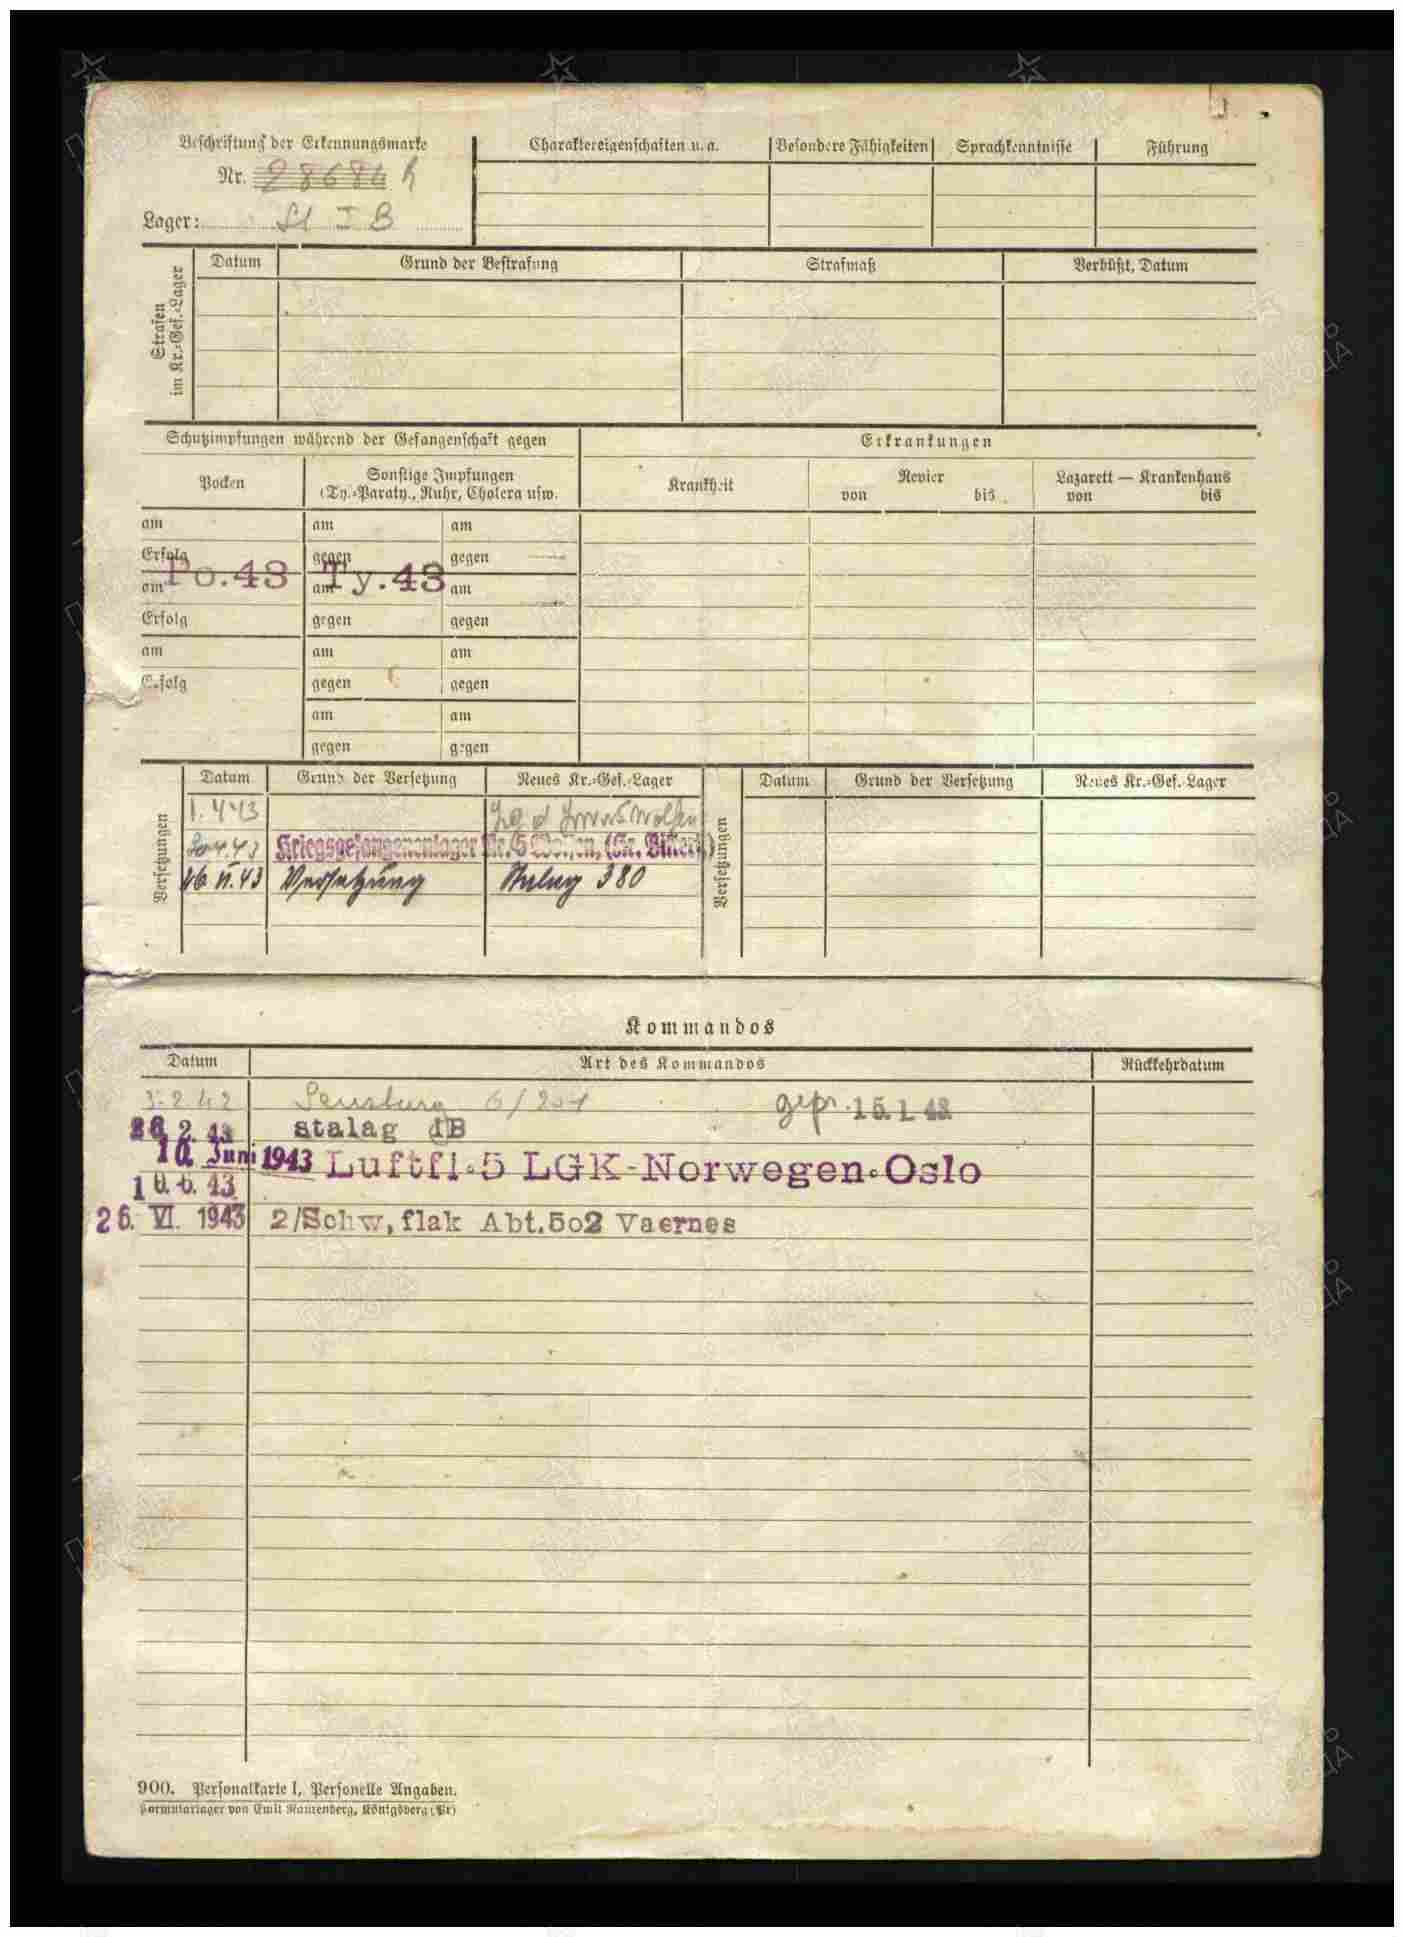 Beschriftung der Erkennungsmarke
Nr. 28684 h
Lager: St I B
Charaktereigenschaften u. a.
Besondere Fähigkeiten
Sprachkenntnisse
Führung
Strafen im Kr.-Gef.-Lager
Datum
Grund der Bestrafung
Strafmaß
Verbüßt, Datum
Schutzimpfungen während der Gefangenschaft gegen
Erkrankungen
Pocken
Sonstige Impfungen
(Ty.-Paraty., Ruhr, Cholera usw.
Krankheit
Revier
von bis
Lazarett — Krankenhaus
von bis
am am am
Erfolg gegen gegen
Po.43 Ty.43
am am am
Erfolg gegen gegen
am am am
Erfolg gegen gegen
am am
gegen gegen
Versetzungen
Datum Grund der Versetzung Neues Kr.-Gef.-Lager
1.443
Kriegsgefangenenlager Nr. 6 Wolfen, (Kr. Bitterf.)
26 VI.43 Versetzung Stalag 380
Versetzungen
Datum Grund der Versetzung Neues Kr.-Gef.-Lager
Kommandos
Datum Art des Kommandos Rückkehrdatum
2.42 Sensburg 6/201 gepr. 15.1.43
2.43 stalag IB
10. Juni 1943 Luftfl.5 LGK-Norwegen.Oslo
10.6.43
26. VI. 1943 2/Schw,flak Abt.502 Vaernes
900. Personalkarte I, Personelle Angaben.
Formularlager von Emil Rautenberg, Königsberg (Pr)